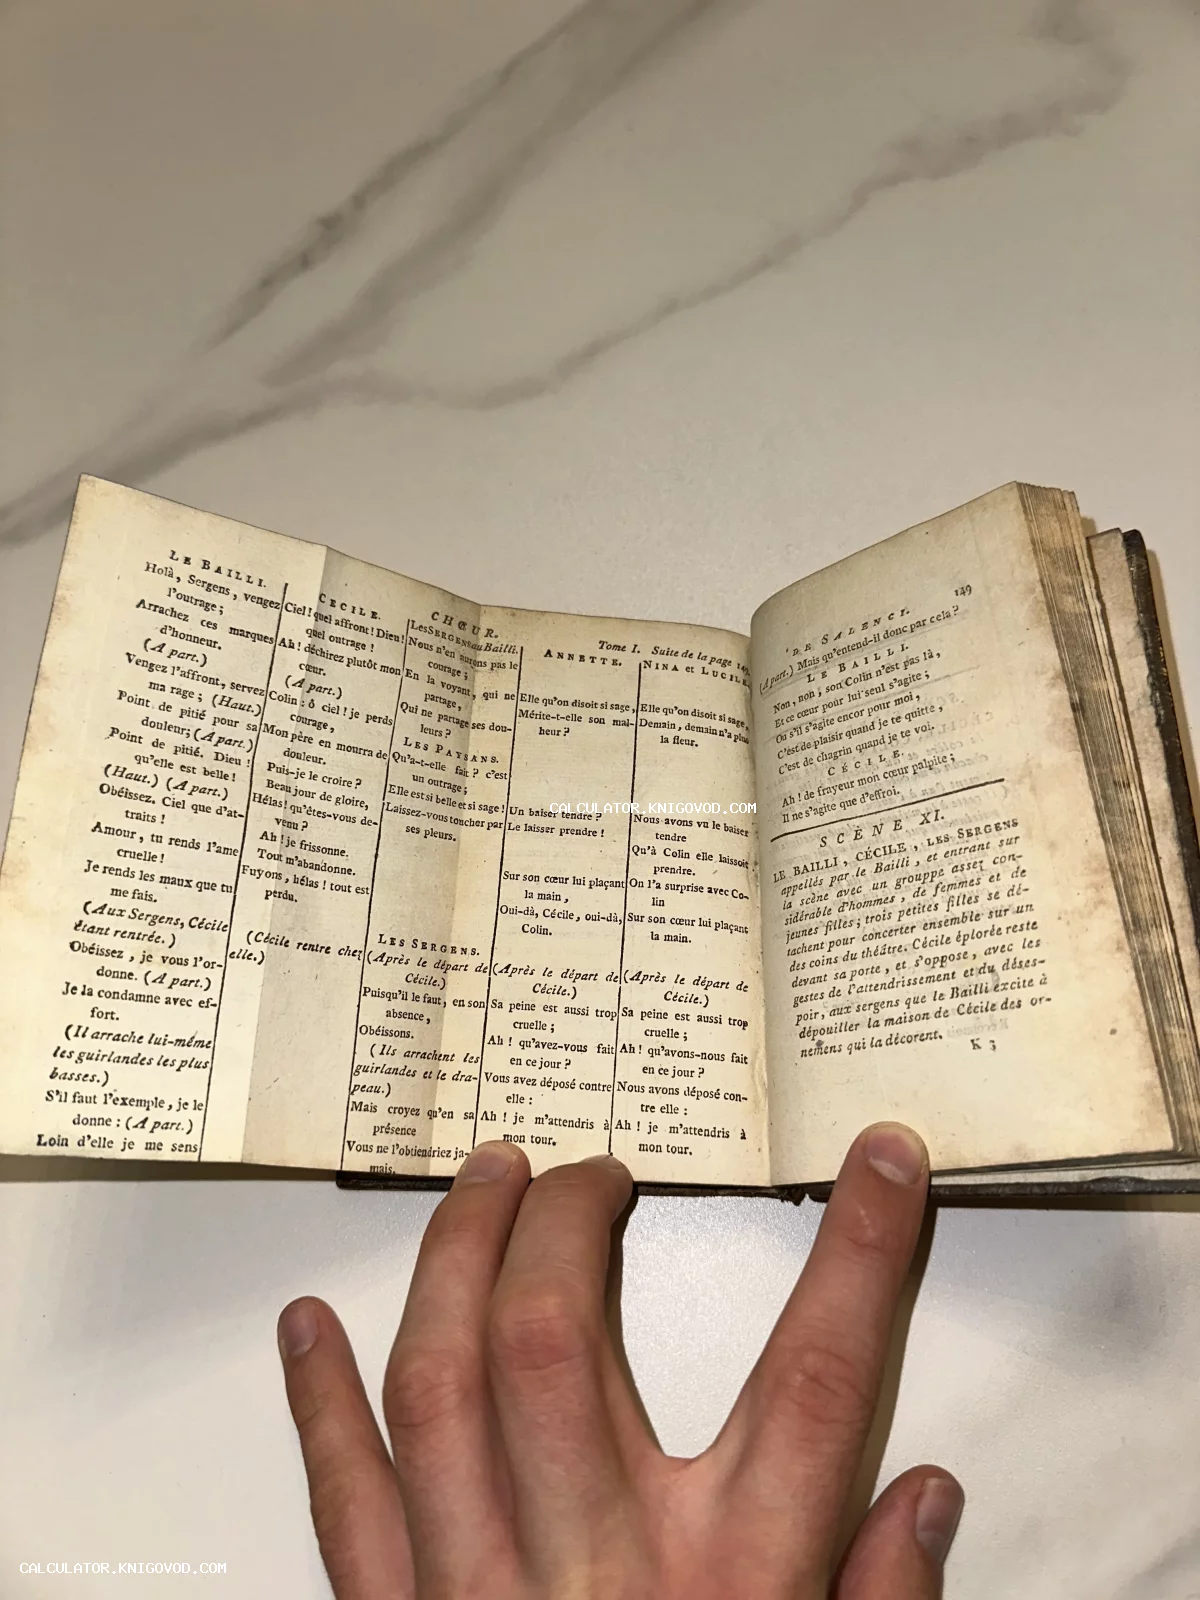 Tome I. Suite de la page 149.
LE BAILLI.
Holà, Sergens, vengez
l'outrage;
Arrachez ces marques
d'honneur.
(A part.)
Vengez l'affront, servez
ma rage; (Haut.)
Point de pitié pour sa
douleur; (A part.)
Point de pitié. Dieu !
qu'elle est belle !
(Haut.) (A part.)
Obéissez. Ciel que d'at-
traits !
Amour, tu rends l'ame
cruelle !
Je rends les maux que tu
me fais.
(Aux Sergens, Cécile
étant rentrée.)
Obéissez, je vous l'or-
donne. (A part.)
Je la condamne avec ef-
fort.
(Il arrache lui-même
les guirlandes les plus
basses.)
S'il faut l'exemple, je le
donne : (A part.)
Loin d'elle je me sens
CECILE.
Ciel ! quel affront ! Dieu !
quel outrage !
Ah ! déchirez plutôt mon
cœur.
(A part.)
Colin : ô ciel ! je perds
courage,
Mon père en mourra de
douleur.
Puis-je le croire ?
Beau jour de gloire,
Hélas ! qu'êtes-vous de-
venu ?
Ah ! je frissonne.
Tout m'abandonne.
Fuyons, hélas ! tout est
perdu.
(Cécile rentre chez
elle.)
CHŒUR.
Les SERGENS au Bailli.
Nous n'en aurons pas le
courage;
En la voyant, qui ne
partage,
Qui ne partage ses dou-
leurs ?
LES PAYSANS.
Qu'a-t-elle fait ? c'est
un outrage;
Elle est si belle et si sage !
Laissez-vous toucher par
ses pleurs.
LES SERGENS.
(Après le départ de
Cécile.)
Puisqu'il le faut, en son
absence,
Obéissons.
(Ils arrachent les
guirlandes et le dra-
peau.)
Mais croyez qu'en sa
présence
Vous ne l'obtiendriez ja-
mais.
ANNETTE.
Elle qu'on disoit si sage,
Mérite-t-elle son mal-
heur ?
Un baiser tendre ?
Le laisser prendre !
Sur son cœur lui plaçant
la main,
Oui-dà, Cécile, oui-dà,
Colin.
(Après le départ de
Cécile.)
Sa peine est aussi trop
cruelle ;
Ah ! qu'avez-vous fait
en ce jour ?
Vous avez déposé contre
elle :
Ah ! je m'attendris à
mon tour.
NINA et LUCILE.
Elle qu'on disoit si sage,
Demain, demain n'a plus
la fleur.
Nous avons vu le baiser
tendre
Qu'à Colin elle laissoit
prendre.
On l'a surprise avec Co-
lin
Sur son cœur lui plaçant
la main.
(Après le départ de
Cécile.)
Sa peine est aussi trop
cruelle ;
Ah ! qu'avons-nous fait
en ce jour ?
Nous avons déposé con-
tre elle :
Ah ! je m'attendris à
mon tour.
DE SALENCI. 149
(A part.) Mais qu'entend-il donc par cela ?
LE BAILLI.
Non, non, son Colin n'est pas là,
Et ce cœur pour lui seul s'agite ;
Ou s'il s'agite encor pour moi,
C'est de plaisir quand je te quitte,
C'est de chagrin quand je te voi.
CÉCILE.
Ah ! de frayeur mon cœur palpite ;
Il ne s'agite que d'effroi.
SCÈNE XI.
LE BAILLI, CÉCILE, LES SERGENS
appellés par le Bailli, et entrant sur
la scène avec un grouppe assez con-
sidérable d'hommes, de femmes et de
jeunes filles; trois petites filles se dé-
tachent pour concerter ensemble sur un
des coins du théâtre. Cécile éplorée reste
devant sa porte, et s'oppose, avec les
gestes de l'attendrissement et du déses-
poir, aux sergens que le Bailli excite à
dépouiller la maison de Cécile des or-
nemens qui la décorent.
K 3
CALCULATOR.KNIGOVOD.COM
CALCULATOR.KNIGOVOD.COM